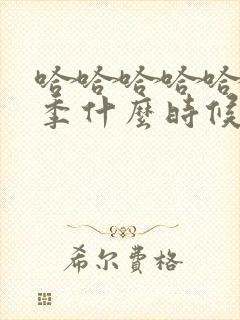 哈哈哈哈哈
季什麼時候
希尔費格